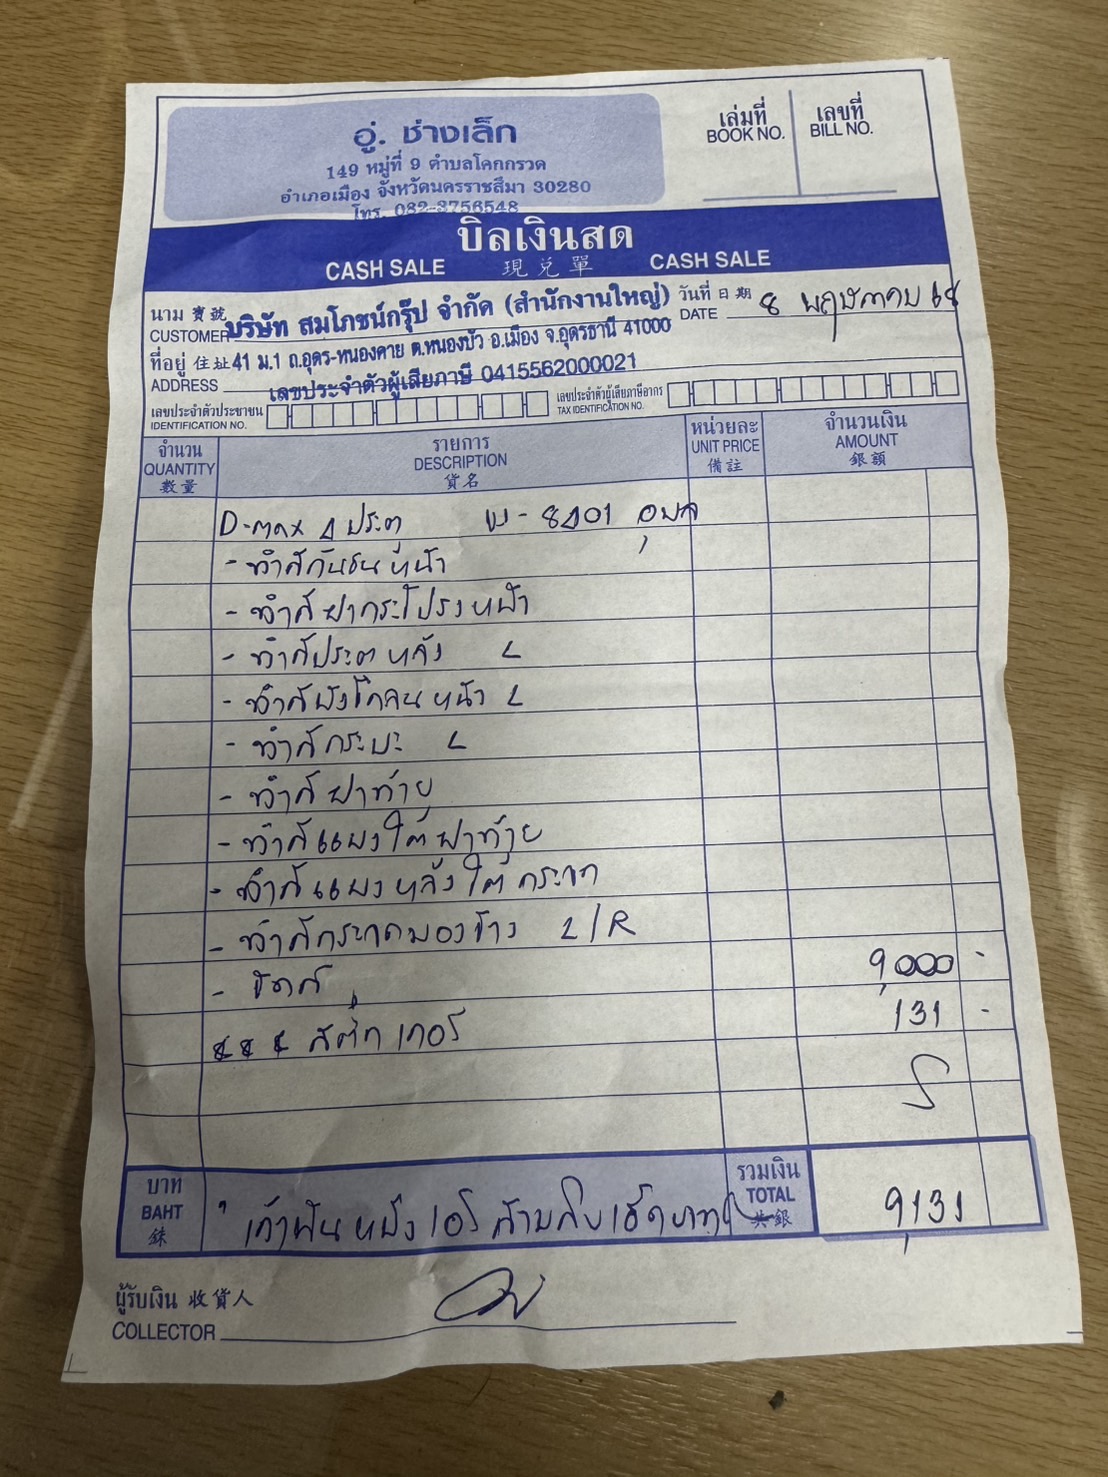 อู่. ช่างเล็ก
149 หมู่ที่ 9 ตำบลโคกกรวด
อำเภอเมือง จังหวัดนครราชสีมา 30280
โทร. 082-3756548
เล่มที่ เลขที่
BOOK NO. BILL NO.
บิลเงินสด
CASH SALE 現兌單 CASH SALE
นาม 寶號 บริษัท สมโภชน์กรุ๊ป จำกัด (สำนักงานใหญ่) วันที่ 日期 8 พฤษภาคม 68
CUSTOMER DATE
ที่อยู่ 住址 41 ม.1 ถ.อุดร-หนองคาย ต.หนองบัว อ.เมือง จ.อุดรธานี 41000
ADDRESS เลขประจำตัวผู้เสียภาษี 0415562000021
เลขประจำตัวประชาชน เลขประจำตัวผู้เสียภาษีอากร
IDENTIFICATION NO. TAX IDENTIFICATION NO.
จำนวน รายการ หน่วยละ จำนวนเงิน
QUANTITY DESCRIPTION UNIT PRICE AMOUNT
數量 貨名 備註 銀額
D-max 4 ประตู - 8401 อุบล
- ทำสีกันชนหน้า
- ทำสีฝากระโปรงหน้า
- ทำสีประตูหลัง L
- ทำสีบังโคลนหน้า L
- ทำสีกระบะ L
- ทำสีฝาท้าย
- ทำสีแผงใต้ฝาท้าย
- ทำสีแผงหลังใต้กระจก
- ทำสีกระจกมองข้าง L/R
- ขัดสี 9,000 -
สติ๊กเกอร์ 131 -
บาท รวมเงิน
BAHT เก้าพันหนึ่งร้อยสามสิบเอ็ดบาท TOTAL 9,131
銖 共銀
ผู้รับเงิน 收貨人
COLLECTOR